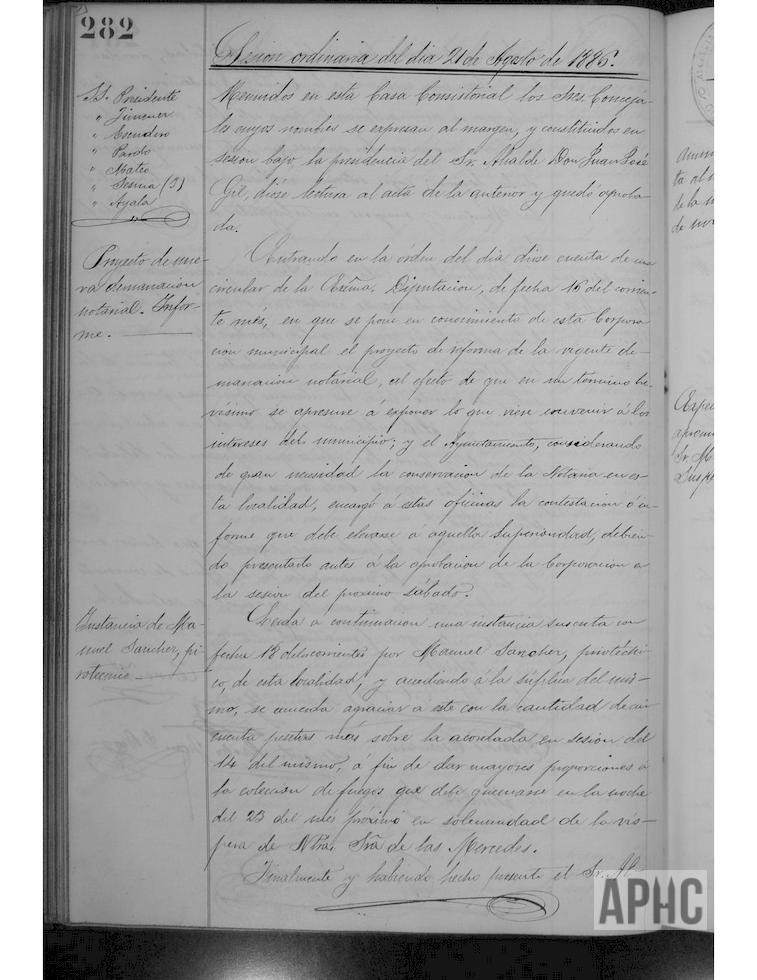 282
Sesion ordinaria del dia 21 de Agosto de 1886.
SS. Presidente
" Jimenez
" Escudero
" Pardo
" Mateo
" Sesma (J)
" Ayala
Reunidos en esta Casa Consistorial los Sres. Conceja-
les cuyos nombres se expresan al margen, y constituidos en
sesion bajo la presidencia del Sr. Alcalde Don Juan José
Gil, dióse lectura al acta de la anterior y quedó aproba-
da.
Proyecto de nue-
va demarcación
notarial. Infor-
me.
Entrando en la órden del dia dióse cuenta de una
circular de la Exma. Diputacion, de fecha 16 del corrien-
te més, en que se pone en conocimiento de esta Corpora
cion municipal el proyecto de reforma de la vigente de-
marcación notarial, al efecto de que en un termino bre-
vísimo se apresure á exponer lo que viere convenir á los
intereses del municipio; y el Ayuntamiento, considerando
de gran necesidad la conservacion de la Notaria en es-
ta localidad, encargó á estas oficinas la contestacion ó in-
forme que debe elevarse á aquella Superioridad, debien-
do presentarlo antes á la aprobacion de la Corporacion en
la sesion del proximo sábado.
Instancia de Ma-
nuel Sanchez, pi-
rotecnico
Leida a continuacion una instancia suscrita con
fecha 18 del corriente por Manuel Sanchez, pirotéchni-
co, de esta localidad, y accediendo á la súplica del mis-
mo, se acuerda agraciar a este con la cantidad de cin
cuenta pesetas más sobre la acordada en sesion del
14 del mismo, á fin de dar mayores proporciones á
la coleccion de fuegos que debe quemarse en la noche
del 23 del més próximo en solemnidad de la vis-
pera de Ntra. Sra de las Mercedes.
Finalmente y habiendo hecho presente el Sr. Al-
APHC